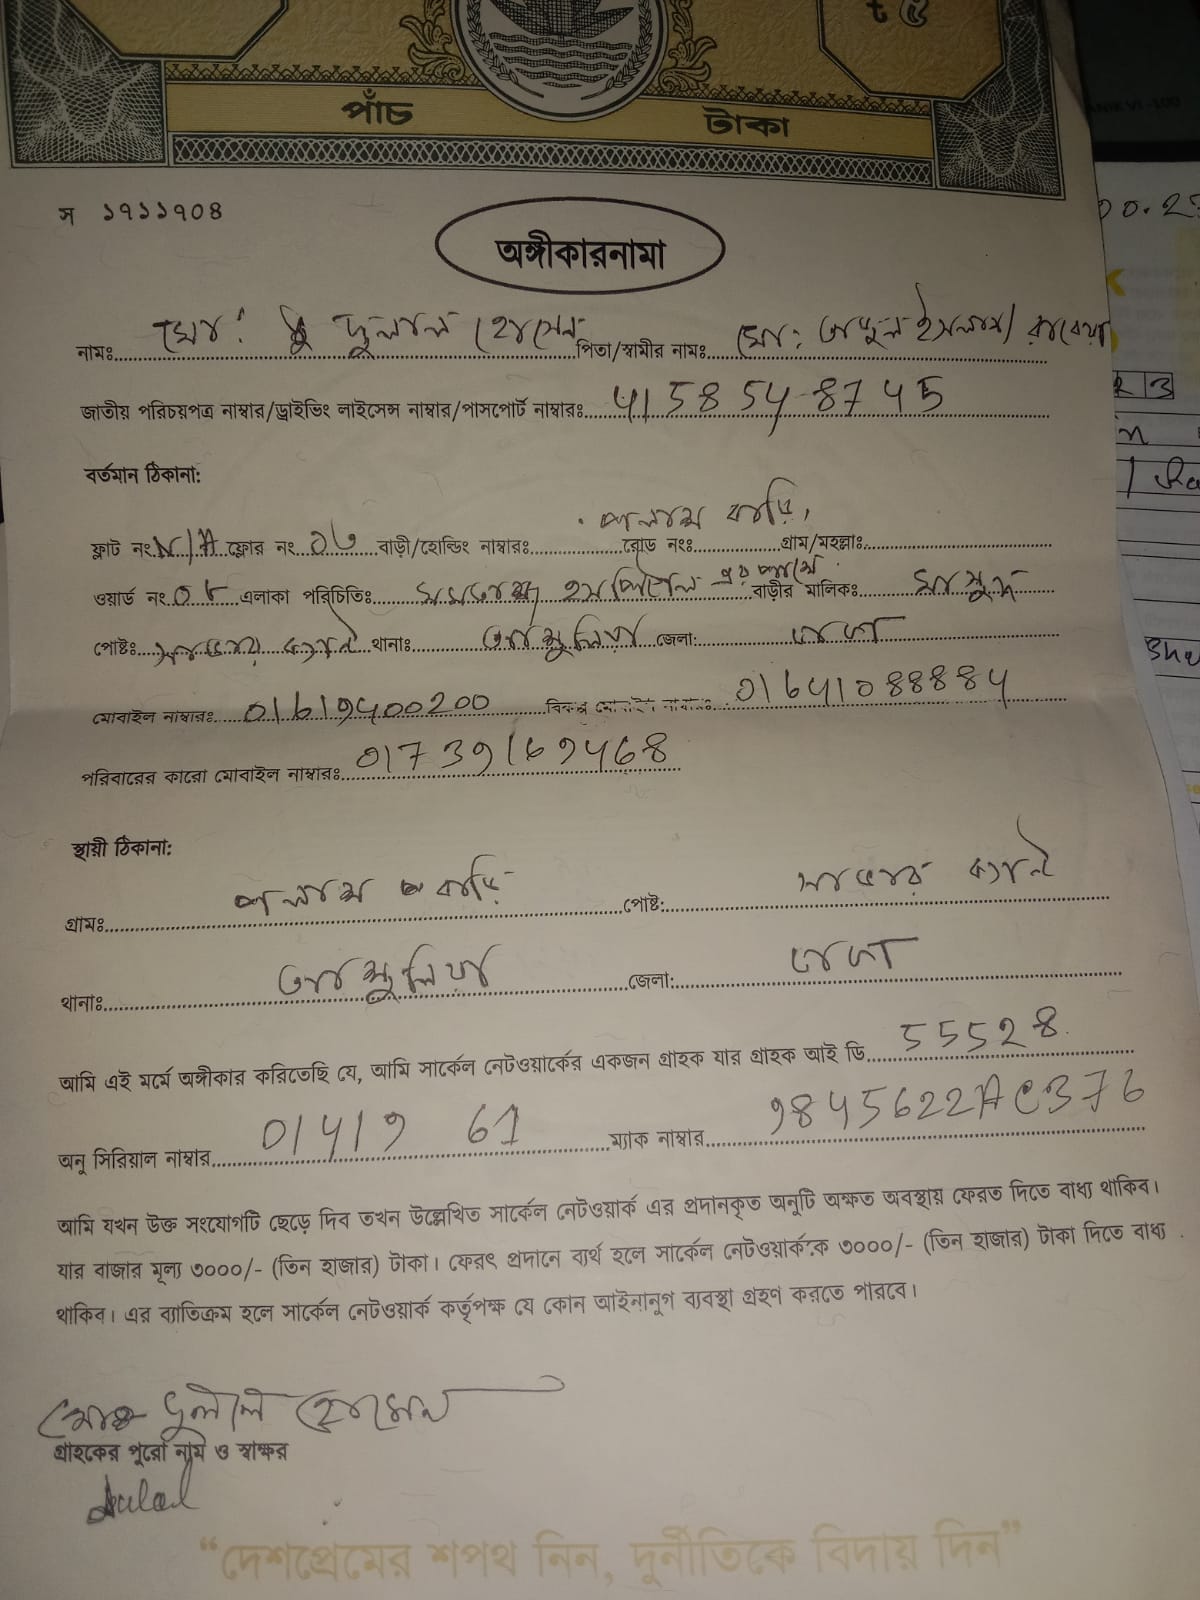 পাঁচ টাকা
স ১৭১১৭০৪
অঙ্গীকারনামা
নামঃ মোঃ দুলাল হোসেন পিতা/স্বামীর নামঃ মোঃ ইসলাম/
জাতীয় পরিচয়পত্র নাম্বার/ড্রাইভিং লাইসেন্স নাম্বার/পাসপোর্ট নাম্বারঃ 4158548745
বর্তমান ঠিকানা:
ফ্লাট নং N/A ফ্লোর নং বাড়ী/হোল্ডিং নাম্বারঃ রোড নংঃ গ্রাম/মহল্লাঃ পলাশ বাড়ি,
ওয়ার্ড নং এলাকা পরিচিতিঃ হসপিটাল এর পাশে বাড়ীর মালিকঃ
পোষ্টঃ থানাঃ আশুলিয়া জেলা: ঢাকা
মোবাইল নাম্বারঃ 01619400200 বিকল্প মোবাইল নাম্বারঃ 01641088884
পরিবারের কারো মোবাইল নাম্বারঃ
স্থায়ী ঠিকানা:
গ্রামঃ পলাশ বাড়ি পোষ্ট:
থানাঃ আশুলিয়া জেলা: ঢাকা
আমি এই মর্মে অঙ্গীকার করিতেছি যে, আমি সার্কেল নেটওয়ার্কের একজন গ্রাহক যার গ্রাহক আই ডি 55528
অনু সিরিয়াল নাম্বার ম্যাক নাম্বার 9845622AC376
আমি যখন উক্ত সংযোগটি ছেড়ে দিব তখন উল্লেখিত সার্কেল নেটওয়ার্ক এর প্রদানকৃত অনুটি অক্ষত অবস্থায় ফেরত দিতে বাধ্য থাকিব।
যার বাজার মূল্য ৩০০০/- (তিন হাজার) টাকা। ফেরৎ প্রদানে ব্যর্থ হলে সার্কেল নেটওয়ার্ককে ৩০০০/- (তিন হাজার) টাকা দিতে বাধ্য
থাকিব। এর ব্যাতিক্রম হলে সার্কেল নেটওয়ার্ক কর্তৃপক্ষ যে কোন আইনানুগ ব্যবস্থা গ্রহণ করতে পারবে।
মোঃ দুলাল হোসেন
গ্রাহকের পুরো নাম ও স্বাক্ষর
dulal
“দেশপ্রেমের শপথ নিন, দুর্নীতিকে বিদায় দিন”